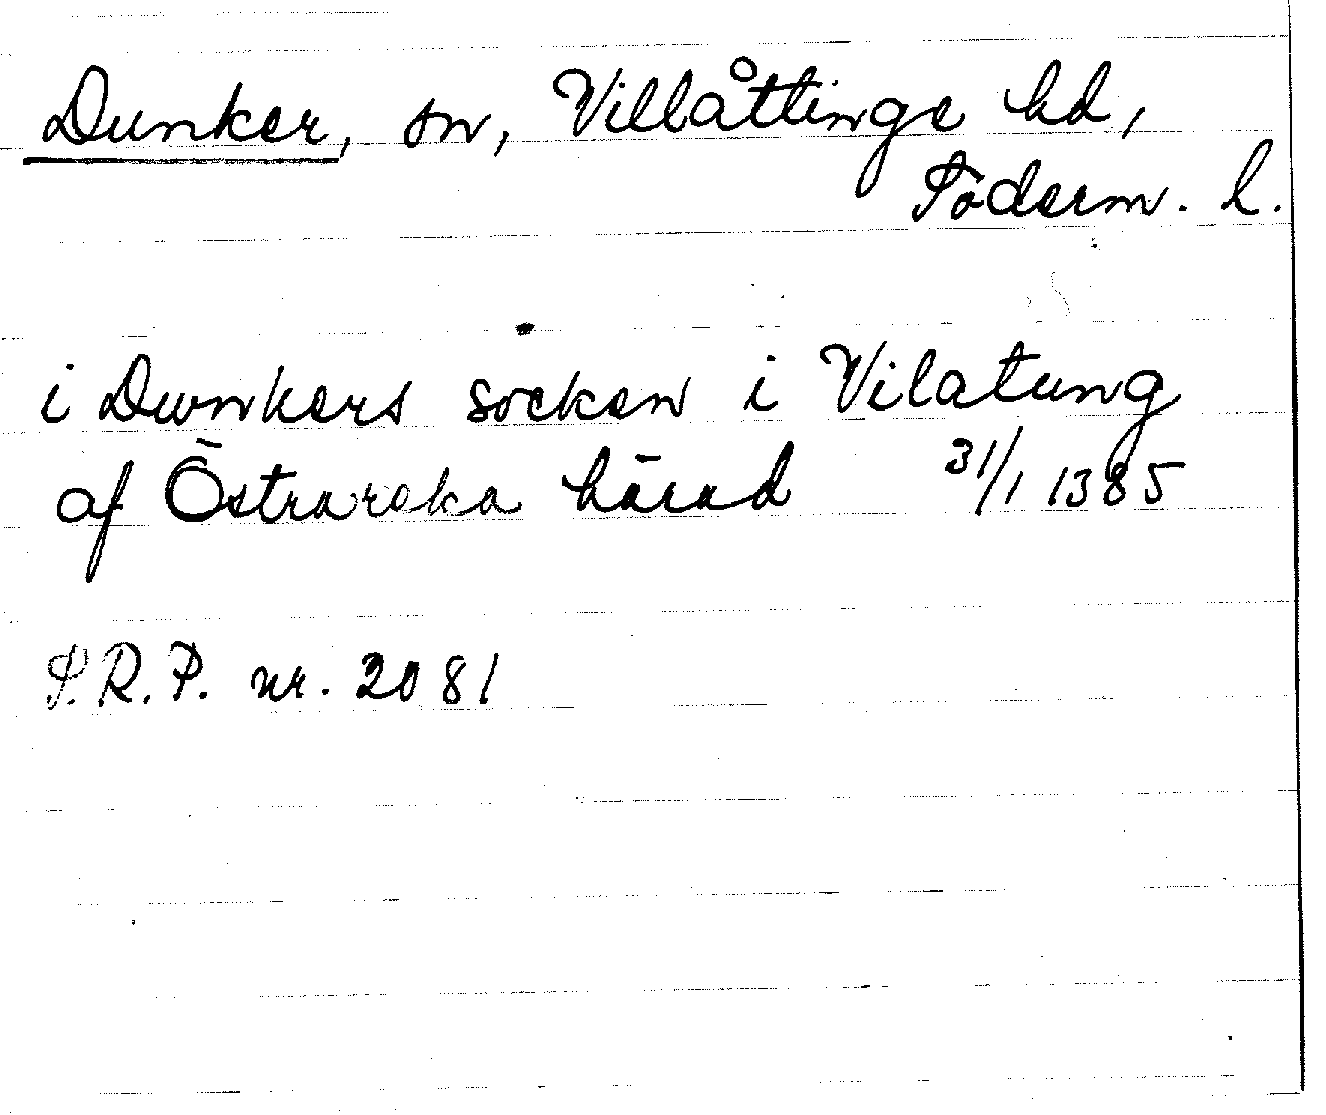 Dunker, sn, Villåttinge hd,
Söderm. l.
i Dwnkers socken i Vilatung
af Östrareka härad 31/1 1385
S.R.P. nr. 2081